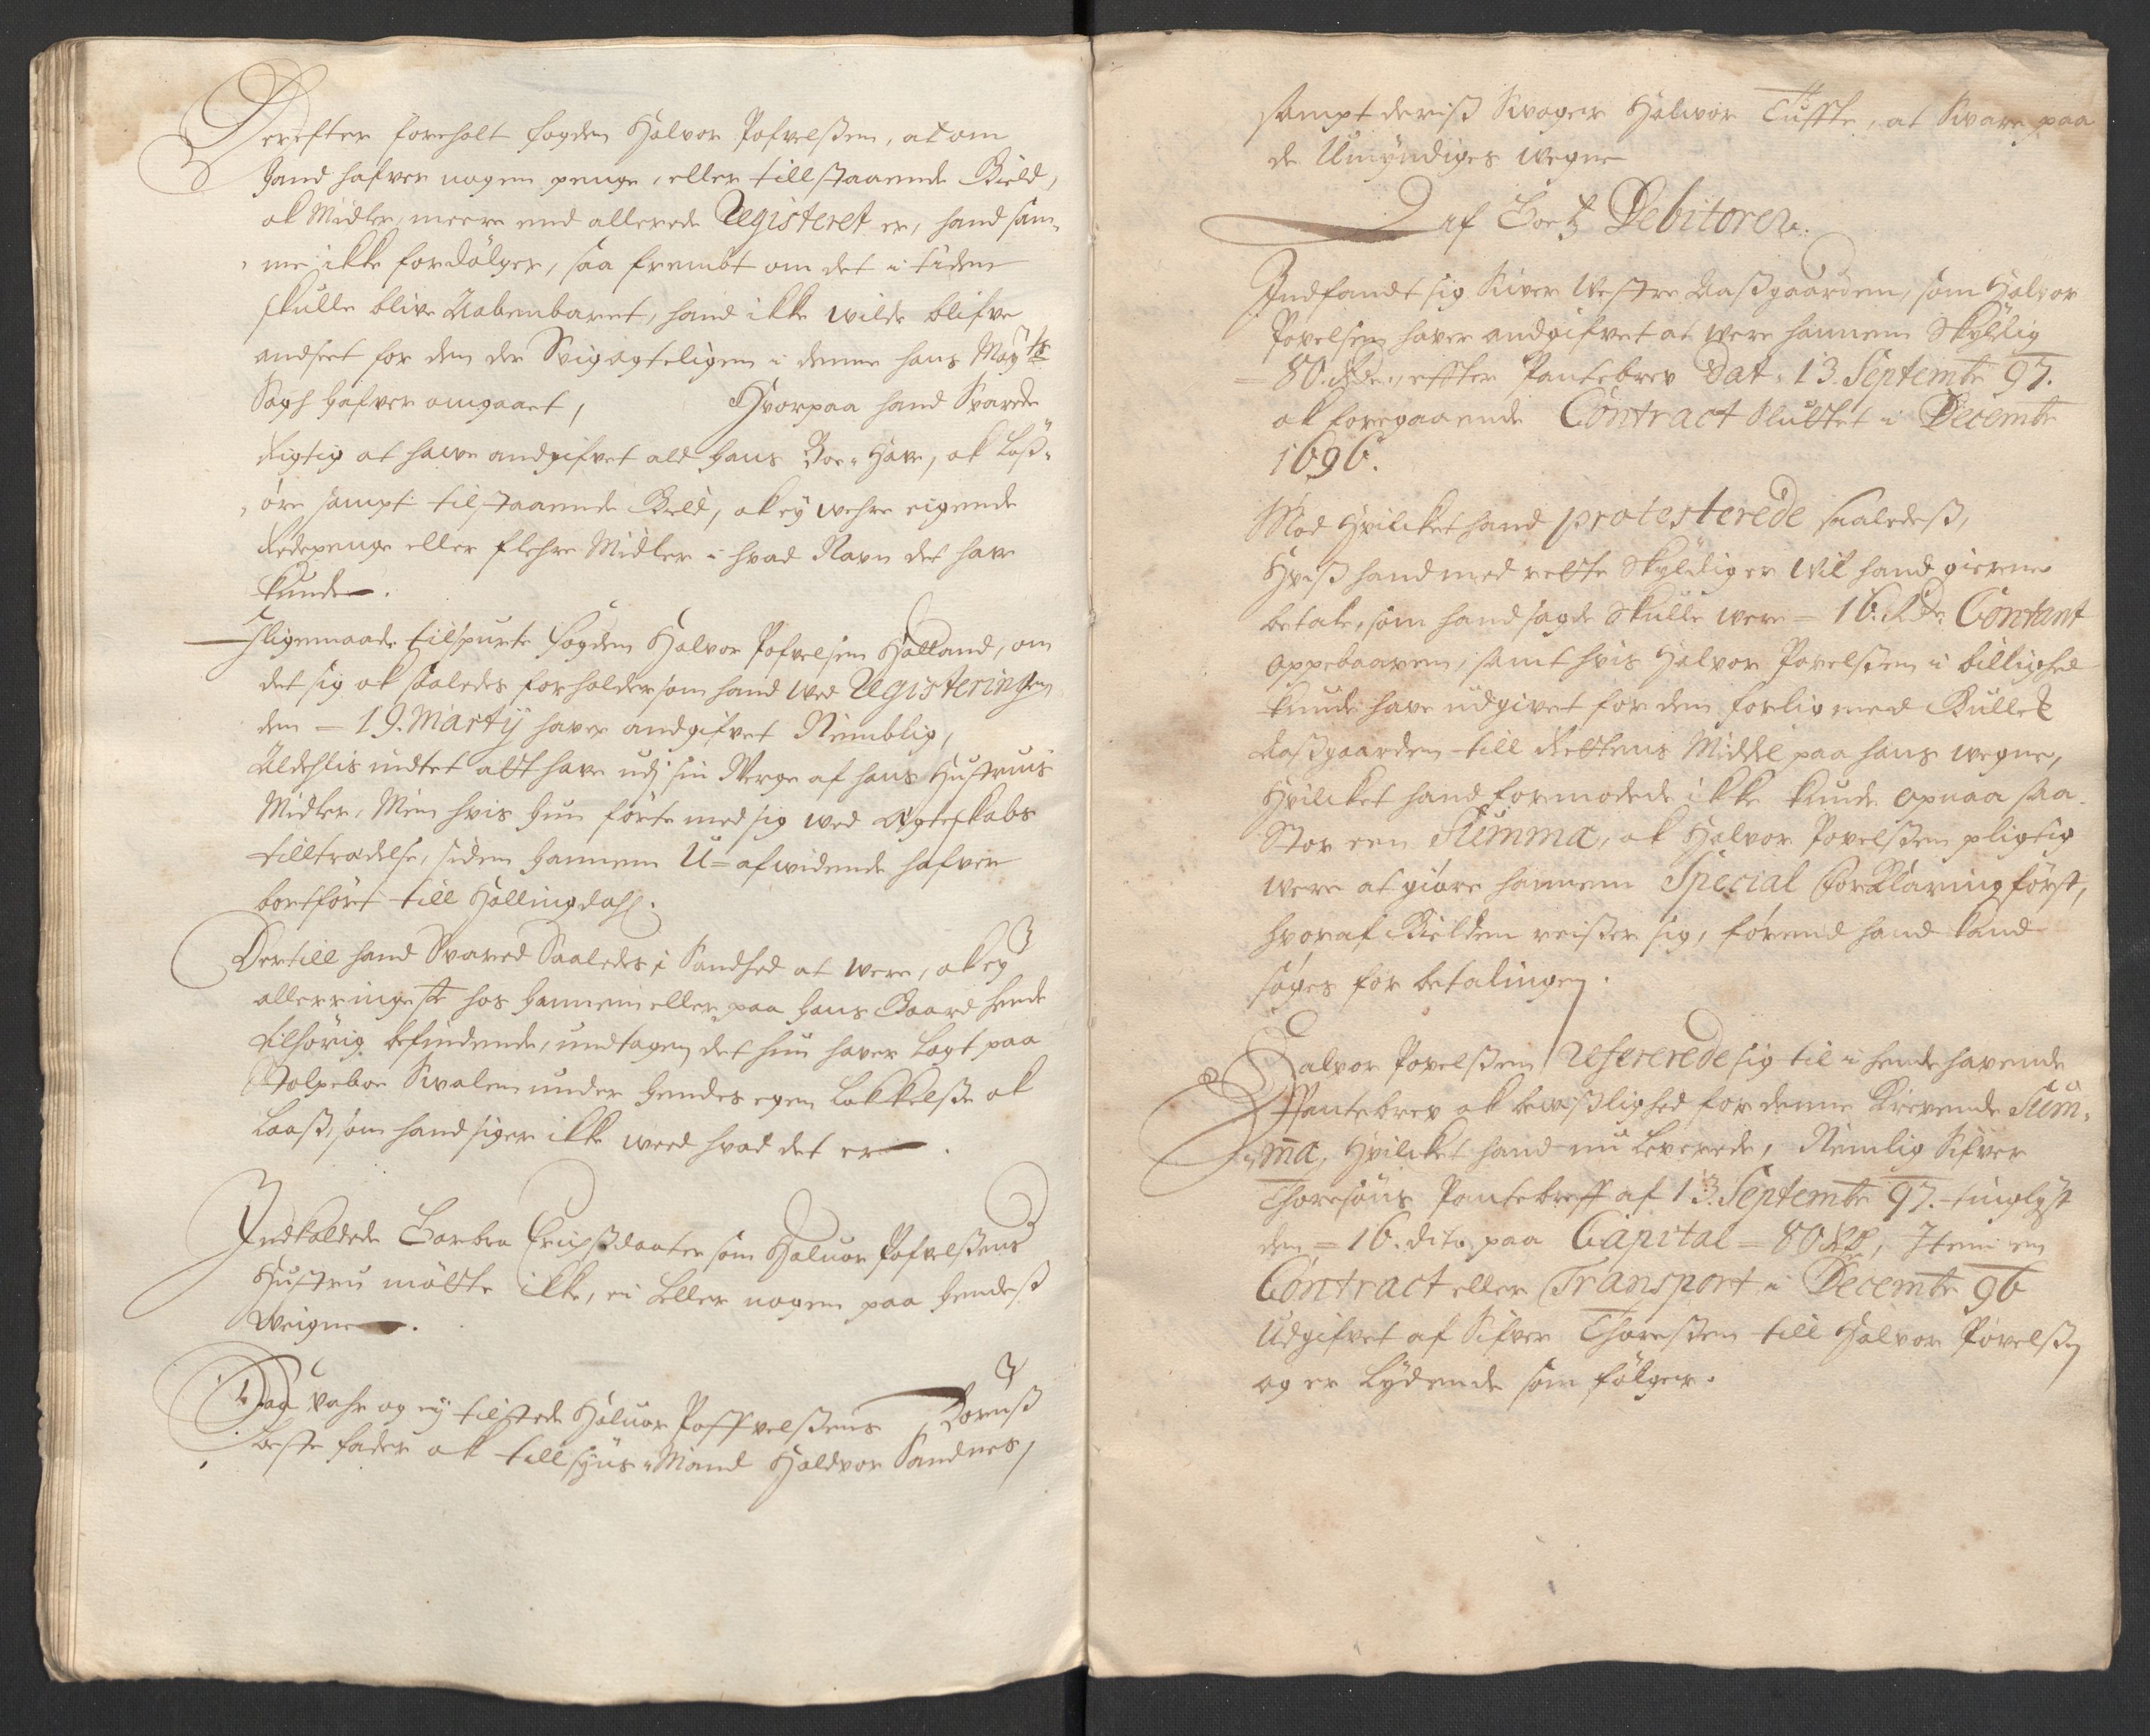 Derefter foreholt fogden Halvor Pofvelßen, at om
hand hafver nogen penge, eller tillstaaende Gield,
ok Midler, meere end allerede Registeret er, hand sam„
„me ikke fordølger, saa frembt om det i tiden
skulle blive Aabenbaret, hand ikke wilde blifve
andseet for den der Svigagteligen i denne hans May.ts
Sagh hafver omgaaet, Hvorpaa hand Svarede
Rigtig at have andgifvet ald hans Boe„Have, ok Løß„
„øre sampt tilstaaende Gield, ok ey wehre eigende
Redepenge eller flehre Midler i hvad Navn det have
kunde.
Ligemaade tilspurte fogden Halvor Pofvelsen Halland, om
det sig ok saaledes forholder som hand wed Registeringen
den = 19. Martij haver andgifvet Nemblig,
Aldehlis indtet att have udj sin Verge af hans Hustruis
Midler, Men hvis hun førte med sig wed Ægteskabs
tilltrædelse, siden hannem U=afwidende hafver
bortført till Hallingdahl.
Dertill hand Svared Saaledes i Sandhed at were, ok ey
allerringeste hos hannem eller paa hans Gaard hende
tilhørig befindende, undtagen det hun haver Lagt paa
Stolpeboe Svalen under hendes egen Lokkelße ok
Laaß, som hand siger ikke weed hvad det er.
Indkaldede Barbra Erichsdaater som Haluor Pofvelßens
Hustru mötte ikke, ei heller nogen paa hendeß
Weigne.
Dog vahr og ey tilstede Haluor Poffvelßens Børnß
beste fader ok tillsyns„Mand Haldvor Sandnes,
sampt deriß Svoger Halvor Tuffte, at Svare paa
de Umyndiges wegne
af Boetz Debitorer.
Indfandt sig Siver Westre Aaßgaarden, som Halvor
Povelsen haver andgifvet at were hannem Skyldig
= 80. Rdr. effter Pantebrev Dat. 13. Septembr 97.
ok foregaaende Contract Sluttet i Decembr
1696.
Mod Hvilcket hand protesterede saaledeß,
Hviß hand med rette Skyldig er Vil hand gierne
betale, som hand sagde Skulle were = 16. Rdr. Contant
oppebaaren, samt hvis Halvor Povelßen i billighed
kunde have udgivet for dem forlig med Gullek
Aaßgaarden till Rettens Middel paa hans wegne,
Hvilcket hand formodede ikke kunde opnaa saa
Stor een Summa, ok Halvor Povelßen pligtig
were at giøre hannem Special forKlaring først,
hvoraf Gielden reißer sig, førend hand kand
søges for betalingen.
Halvor Povelßen Refererede sig til i hende havende
Pantebrev ok bevißlighed for denne Krevende Sum„
„ma, Hvilcket hand nu Leverede, Nemlig Sifver
Thoresöns Pantebreff af 13. Septembr 97. tinglyst
den = 16. dito paa Capital = 80 Rdr, Item en
Contract eller Transport i Decembr 96
Udgifvet af Sifver Thoreßen till Halvor Povelßen
og er Lydende som følger.